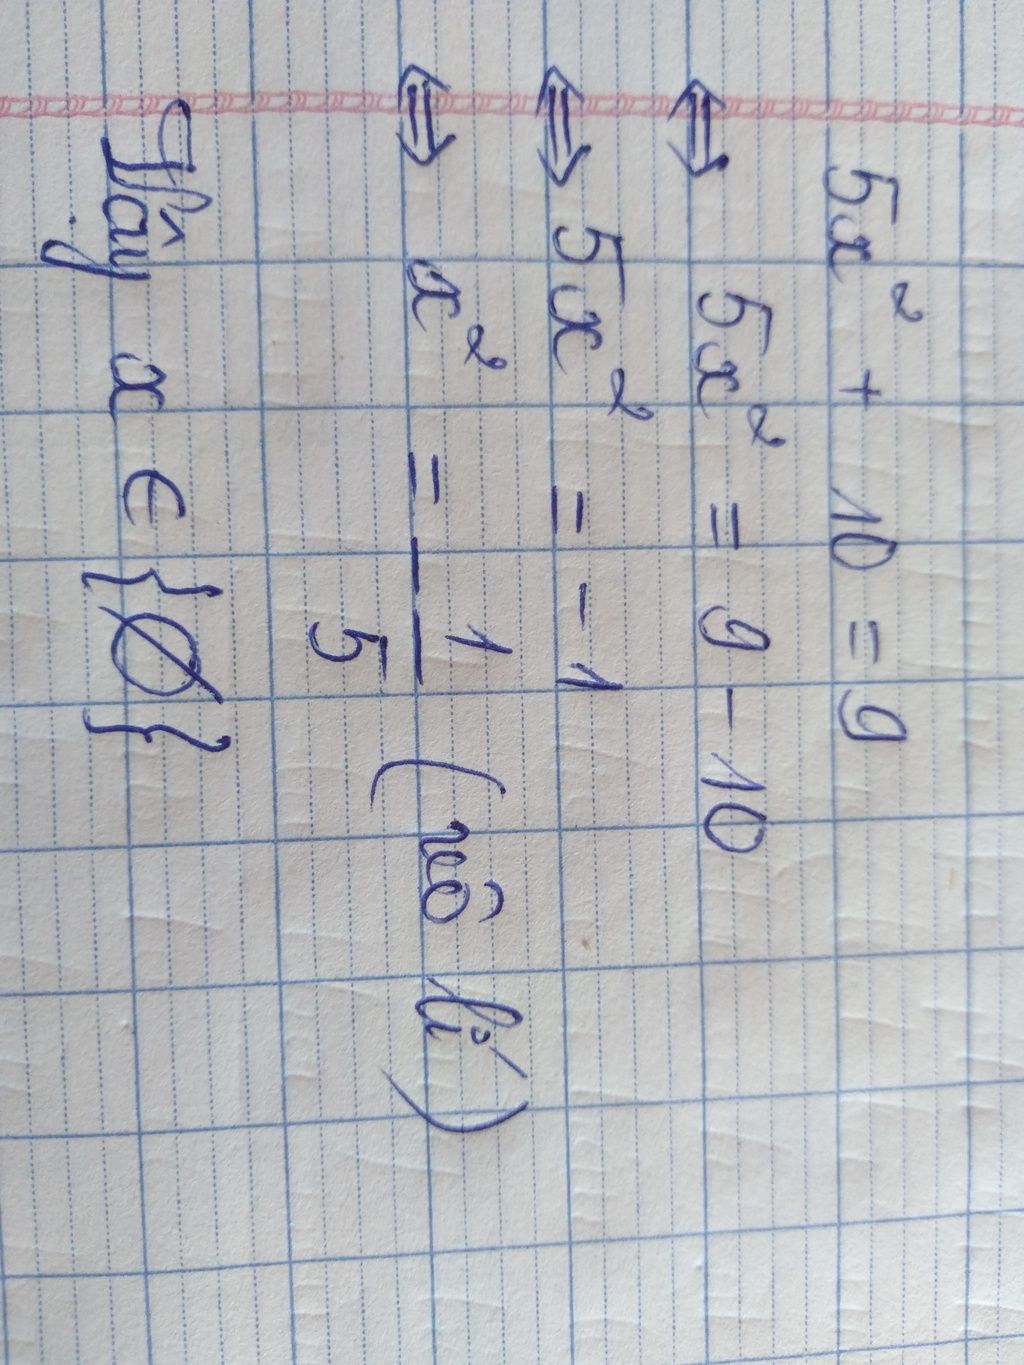 5x² + 10 = 9
⇔ 5x² = 9 - 10
⇔ 5x² = -1
⇔ x² = -1/5 (vô lí)
Vậy x ∈ {∅}